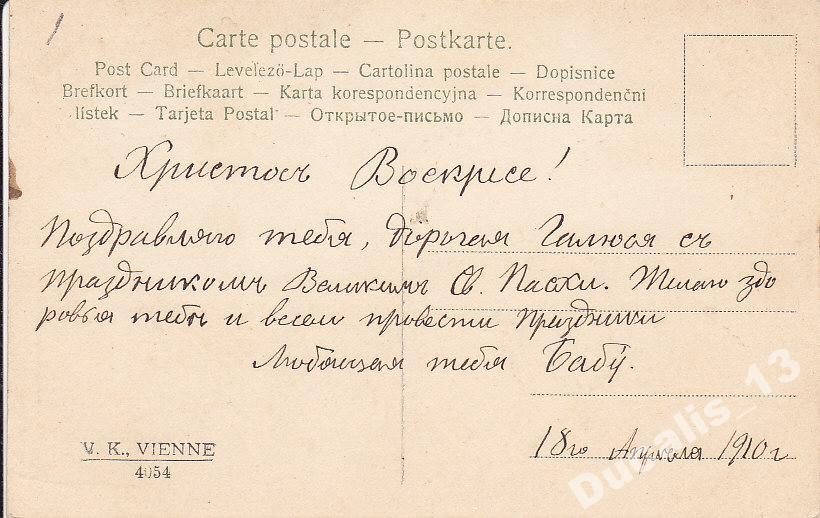 Carte postale — Postkarte.
Post Card — Levelező-Lap — Cartolina postale — Dopisnice
Brefkort — Briefkaart — Karta korespondencyjna — Korrespondenční
lístek — Tarjeta Postal — Открытое-письмо — Дописна Карта
Христосъ Воскресе!
Поздравляю тебя, дорогая Галюся съ
праздникомъ Великимъ Св. Пасхи. Желаю здо
ровья тебѣ и весело провести праздники
Любящая тебя
18го Апрѣля 1910 г
V. K., VIENNE
4054
Dualis_13